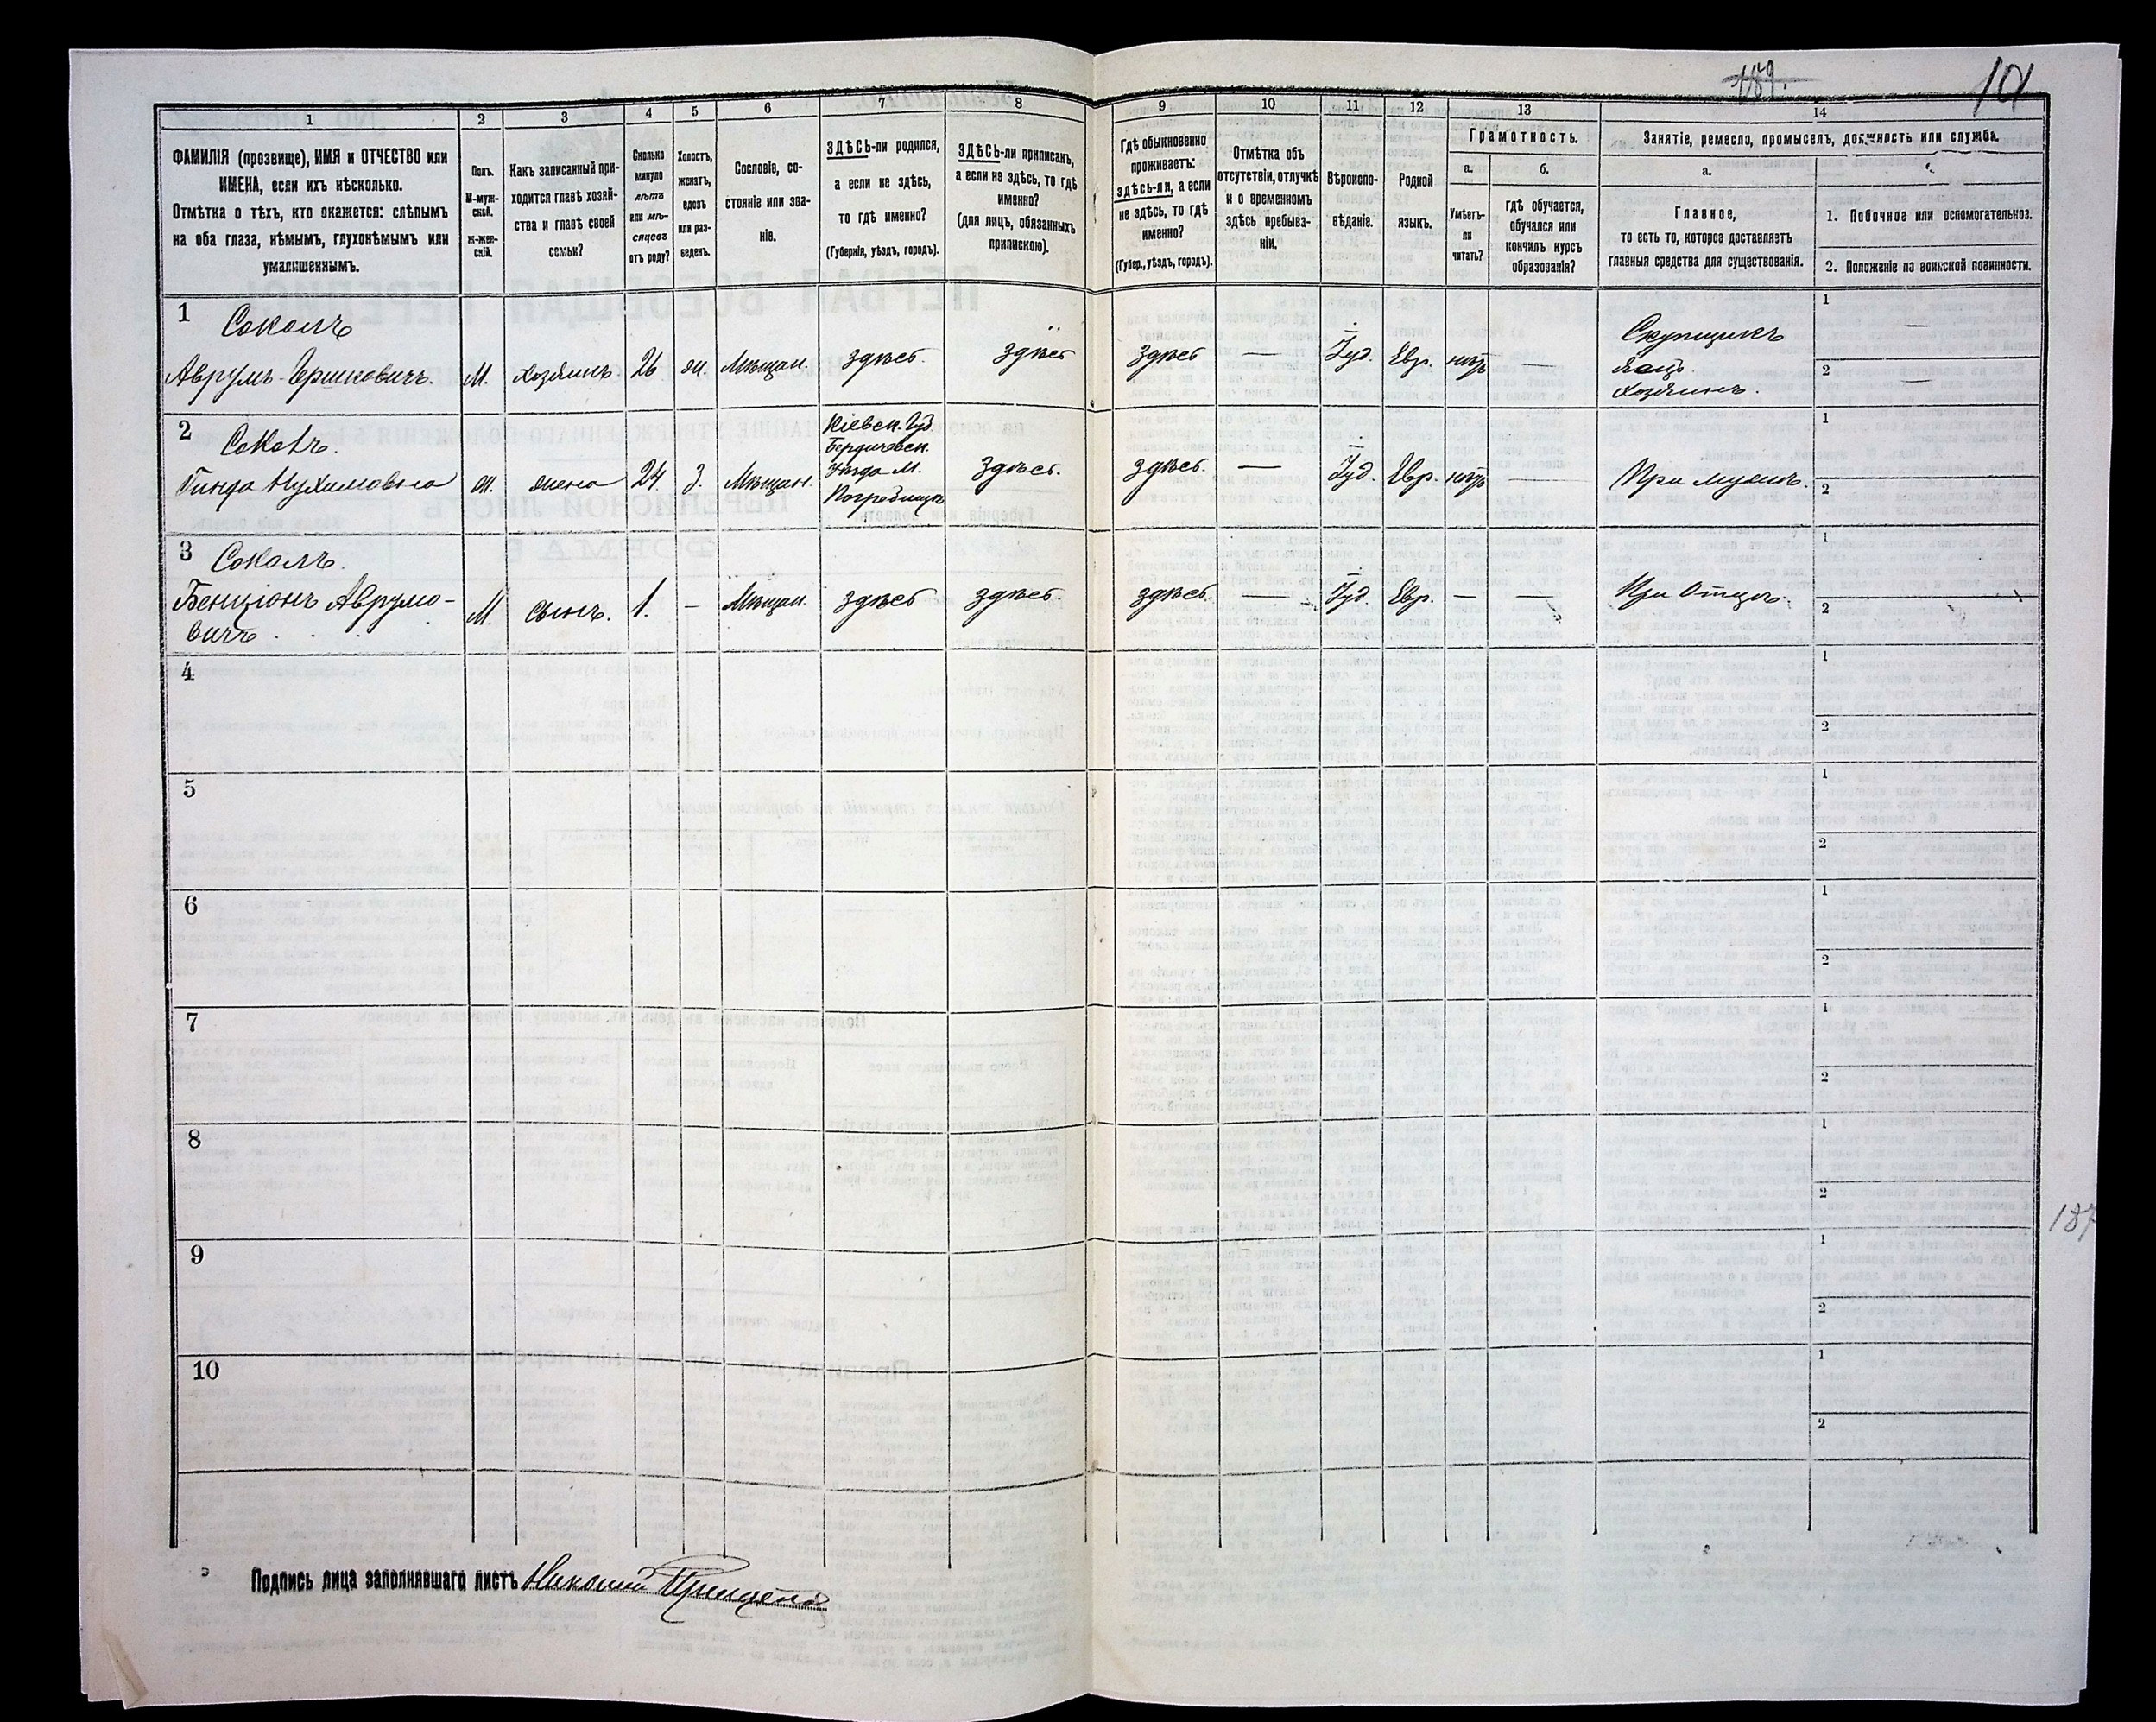 189.
101
1
2
3
4
5
6
7
8
9
10
11
12
13
14
ФАМИЛІЯ (прозвище), ИМЯ и ОТЧЕСТВО или
ИМЕНА, если ихъ нѣсколько.
Отмѣтка о тѣхъ, кто окажется: слѣпымъ
на оба глаза, нѣмымъ, глухонѣмымъ или
умалишеннымъ.
Полъ.
М-муж-
ской.
ж-жен-
скій.
Какъ записанный при-
ходится главѣ хозяй-
ства и главѣ своей
семьи?
Сколько
минуло
лѣтъ
или мѣ-
сяцевъ
отъ роду?
Холостъ,
женатъ,
вдовъ
или раз-
веденъ.
Сословіе, со-
стояніе или зва-
ніе.
ЗДѢСЬ-ли родился,
а если не здѣсь,
то гдѣ именно?
(Губернія, уѣздъ, городъ).
ЗДѢСЬ-ли приписанъ,
а если не здѣсь, то гдѣ
именно?
(для лицъ, обязанныхъ
припискою).
Гдѣ обыкновенно
проживаетъ:
здѣсь-ли, а если
не здѣсь, то гдѣ
именно?
(Губер., уѣздъ, городъ).
Отмѣтка объ
отсутствіи, отлучкѣ
и о временномъ
здѣсь пребыва-
ніи.
Вѣроиспо-
вѣданіе.
Родной
языкъ.
Грамотность.
а.
Умѣетъ-
ли
читать?
б.
гдѣ обучается,
обучался или
кончилъ курсъ
образованія?
Занятіе, ремесло, промыселъ, должность или служба.
а.
Главное,
то есть то, которое доставляетъ
главныя средства для существованія.
1. Побочное или вспомогательное.
2. Положеніе по воинской повинности.
1
Соколъ
Аврумъ-Гершковичъ.
М.
хозяинъ
26
ж.
Мѣщан.
здѣсь.
здѣсь
здѣсь
—
Іуд.
Евр.
нѣтъ
—
Скупщикъ
яицъ.
Хозяинъ.
1
—
2
—
2
Соколъ.
Гинда Нухимовна
ж.
жена
24
з.
Мѣщан.
Кіевск. Губ.
Бердичевск.
Уѣзда М.
Погребище
здѣсь.
здѣсь.
—
Іуд.
Евр.
нѣтъ
—
При мужѣ.
1
2
3
Соколъ.
Бенціонъ Аврумо-
вичъ.
М
сынъ.
1.
—
Мѣщан.
здѣсь
здѣсь
здѣсь
—
Іуд.
Евр.
—
—
При Отцѣ.
1
2
4
1
2
5
1
2
6
1
2
7
1
2
8
1
2
187
9
1
2
10
1
2
Подпись лица заполнявшаго листъ Николай